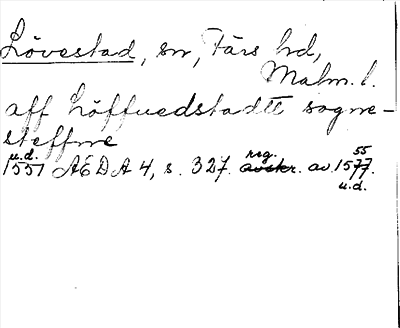 Lövestad, sn, Färs hd,
Malm. l.
aff Löffuedstadtt sogne-
steffne
u.d. 1551 AEDA 4, s. 327. reg. avskr. av 1577. 55 u.d.